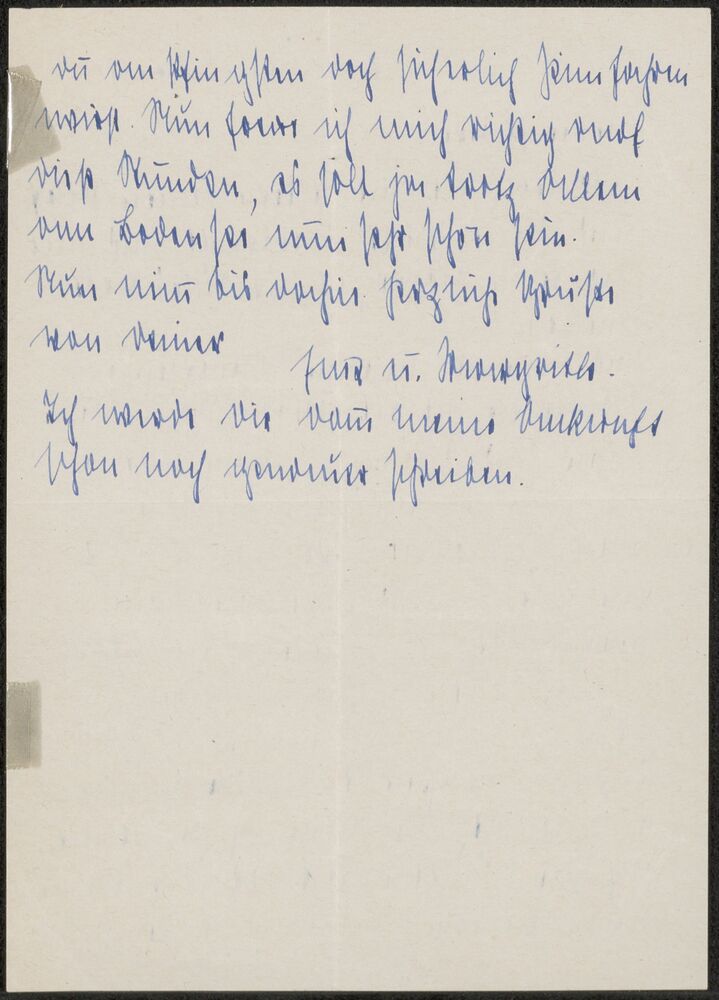 du am Pfingsten doch sicherlich heimfahren
wirst. Nun freue ich mich richtig auf
diese Stunden, es soll ja trotz Allem
am Bodensee nun sehr schön sein.
Nun nim bis dahin herzliche Grüsse
von deiner
u. Margritle.
Ich werde dir dann meine Ankunft
schon noch genauer schreiben.